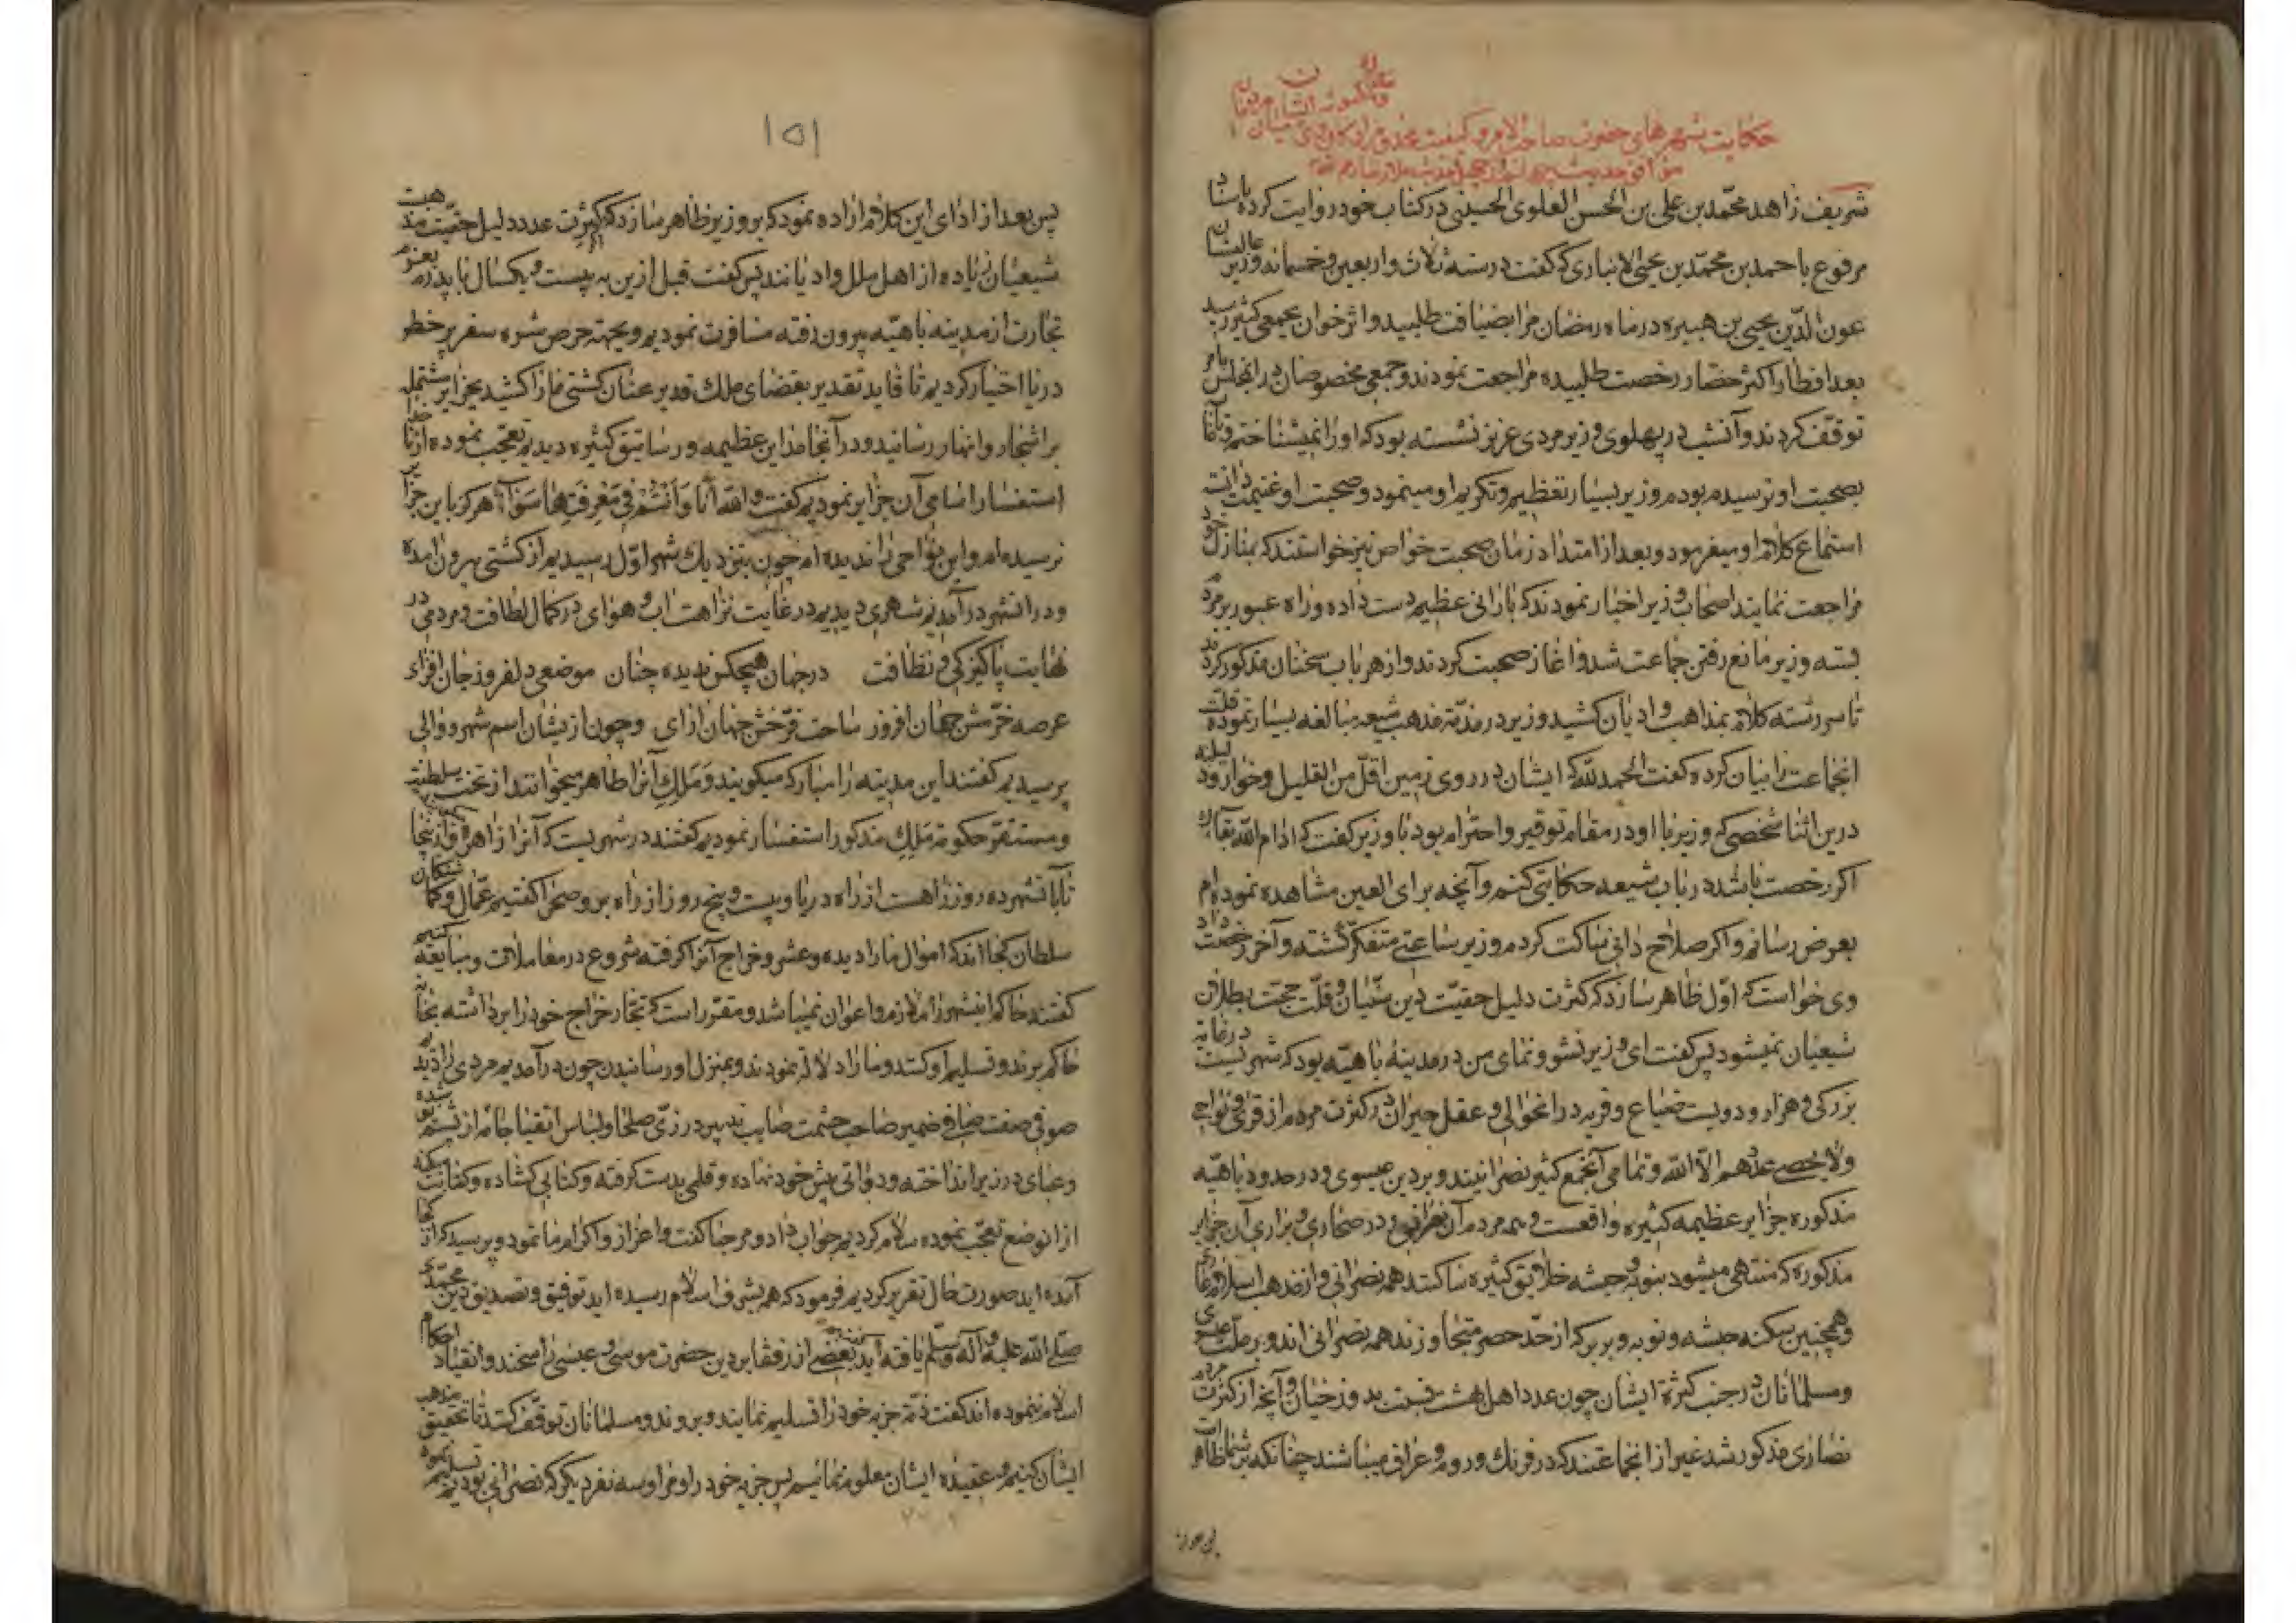 حکایت شهرهای حضرت صاحب الامر و کیفیت
شریف زاهد محمّد بن علی بن الحسن العلوی الحسینی در کتاب خود روایت کرده باسناد
مرفوع باحمد بن محمّد بن یحیی الانباری که گفت در سنه ثلاث واربعین وخمسمائه وزیر عالیشان
عون الدّین یحیی بن هبیره در ماه رمضان مرا بضیافت طلبید و اثر خوان بجمعی کثیر رسید
بعد افطار اکثر حضار رخصت طلبیده مراجعت نمودند و جمعی مخصوصان در انمجلس بامر
توقّف کردند و آنشب در پهلوی وزیر مردی عزیز نشسته بود که اورا نمیشناختم و تا آن
بصحبت او نرسیده بودم وزیر بسیار تعظیم و تکریم او مینمود و صحبت او غنیمت دانسته
استماع کلام او میفرمود و بعد از امتداد زمان صحبت خواص نیز خواستند که بمنازل خود
مراجعت نمایند اصحاب وزیر اخبار نمودند که بارانی عظیم دست داده و راه عبور بر مردم
بسته وزیر مانع رفتن جماعت شد و اغاز صحبت کردند و از هر باب سخنان مذکور کردند
تا سر رشته کلام بمذاهب و ادیان کشید وزیر در مذمّة مذهب شیعه مبالغه بسیار نموده قلّت
انجماعت را بیان کرده گفت الحمد لله که ایشان در روی زمین اقلّ من القلیل و خوار و
درین اثنا شخصی که وزیر با او در مقام توقیر و احترام بود با وزیر گفت که ادام الله بقاک
اگر رخصت باشد در باب شیعه حکایتی کنم و آنچه برای العین مشاهده نموده‌ام
بعرض رسانم و اگر صلاح دانی ساکت کردم وزیر ساعتی متفکّر گشته و آخر رخصت داد
وی خواست که اوّل ظاهر سازد که کثرت دلیل حقیّت دین سنّیان و قلّت حجت بطلان
شیعیان نمیشود پس گفت ای وزیر نشو و نمای من در مدینهٔ باهیّه بود که شهریست در غایة
بزرکی و هزار و دویست ضیاع و قریه در انحوالی و عقل حیران در کثرت مردم از قری و نواحی
ولا یحصی عددهم الّا الله و تمامی آنجمع کثیر نصرانیند و بر دین عیسوی و در حدود باهیّه
مذکوره جزایر عظیمه کثیره واقعست و همه مردم آن نصرانی و در صحاری و براری آن جزایر
مذکوره که منتهی میشود بنوبه و حبشه خلایق کثیره ساکنند همه نصرانی و از مذهب اسلام عاری
و همچنین سکنه حبشه و نوبه و بربر که از حدّ حصر متجاوزند همه نصرانی اند و بر ملّت عیسی
و مسلمانان در جنب کثرة ایشان چون عدد اهل بهشت نسبت بدوزخیان و آنچه از کثرت مردم
نصاری مذکور شد غیر از انجماعتند که در فرنک و روم و عراق میباشند چنانکه بر شما ظاهر است
۱۵۱
پس بعد از ادای این کلام اراده نمود که بر وزیر ظاهر سازد که اگر کثرت عدد دلیل حقیّت مذهبست
شیعیان زیاده از اهل ملل و ادیانند پس گفت قبل ازین به بیست و یکسال با پدرم بعزم
تجارت از مدینه باهیّه بیرون رفته مسافرت نمودیم و بجهة حرص شره سفر پر خطر
دریا اختیار کردیم تا قاید تقدیر بقضای ملک قدیر عنان کشتی ما را کشید بجزایر مشتمله
بر اشجار و انهار رسانید و در آنجا مداین عظیمه و رساتیق کثیره دیدیم تعجّب نموده از ناخدا
استفسار اسامی آن جزایر نمودیم گفت والله أنا وَأنتُم فی مَعرِفَتِها سَواء هرکز باین جزایر
نرسیده‌ام و این نواحی را ندیده‌ام چون بنزدیک شهر اوّل رسیدیم از کشتی بیرون آمده
و در انشهر در آمدیم شهری دیدیم در غایت نزاهت اب و هوای در کمال لطافت و مردمی در
نهایت پاکیزکی و نظافت درجهان هیچکس ندیده چنان موضعی دلفروز جان افزای
عرصه خرّمش جهان افروز ساحت فرّخش جهان ارای و چون از یشان اسم شهر و والی
پرسیدیم گفتند این مدینه را مبارکه میکویند و مَلِک آنرا طاهر میخوانند از تخت سلطنت
و مستقرّ حکومة مَلِک مذکور استفسار نمودیم گفتند در شهریست که آنرا زاهره و از ینجا
تا بآنشهر ده روزه راهست از راه دریا و بیست و پنج روز از راه بر و صحرا گفتیم عمّال و گماشتگان
سلطان کجااند که اموال ما را دیده و عشر و خراج آنرا گرفته شروع در معاملات و مبایعه کنیم
گفتند حاکم اینشهر را ملازم و اعوان نمیباشد و مقرّر است که تجّار خراج خود را برداشته بخانه
حاکم برند و تسلیم او کنند و ما را دلالة نمودند و بمنزل او رسانیدن چون در آمدیم مردی را دیدیم
صوفی صفت صافی ضمیر صاحب حشمت صایب تدبیر در زیّ صلحا و لباس اتقیا جامه از پشم پوشیده
و عبای در زیر انداخته و دواتی پیش خود نهاده و قلمی بدست گرفته و کتابی گشاده و کتابت میکند
از انوضع تعجّب نموده سلام کردیم جواب داد و مرحبا گفت و اعزاز و اکرام ما نمود و پرسید که از کجا
آمده‌اید صورت حال تقریر کردیم فرمود که همه بشرف اسلام رسیده‌اید توفیق و تصدیق دین محمّدی
صلّی الله علیه وآله وسلّم یافته‌اید گفتیم بعضی از رفقا بر دین حضرت موسی و عیسی راسخند و انقیاد احکام
اسلام ننموده‌اند گفت ذمّة جزیه خود را تسلیم نمایند و بروند و مسلمانان توقّف کنند تا تحقیق مذهب
ایشان کنیم و عقیده ایشان معلوم نمائیم پس جزیه خود را و مرا و سه نفر دیکر که نصرانی بودیم تسلیم نموده